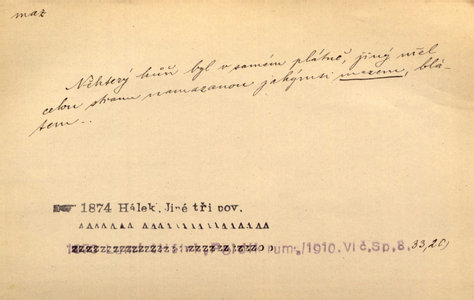 maz
Některý kůň byl v samém plátně, jiný měl
celou stranu namazanou jakýmsi mazem, blá-
tem..
1874 Hálek. Jiné tři pov.
rum.,1910. VI č, Sp, 8. 33, 20)